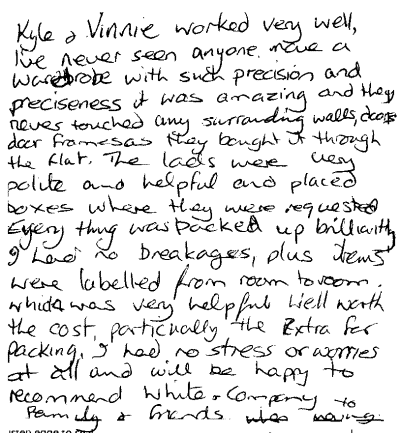 Kyle & Vinnie worked very well,
I've never seen anyone move a
wardrobe with such precision and
preciseness it was amazing and they
never touched any surrounding walls, doors
door frames as they bought it through
the flat. The lads were very
polite and helpful and placed
boxes where they were requested
Every thing was packed up brilliantly
I had no breakages, plus items
were labelled from room to room.
which was very helpful Well worth
the cost, particually the Extra for
packing. I had no stress or worries
at all and will be happy to
recommend White & Company to
Family & friends